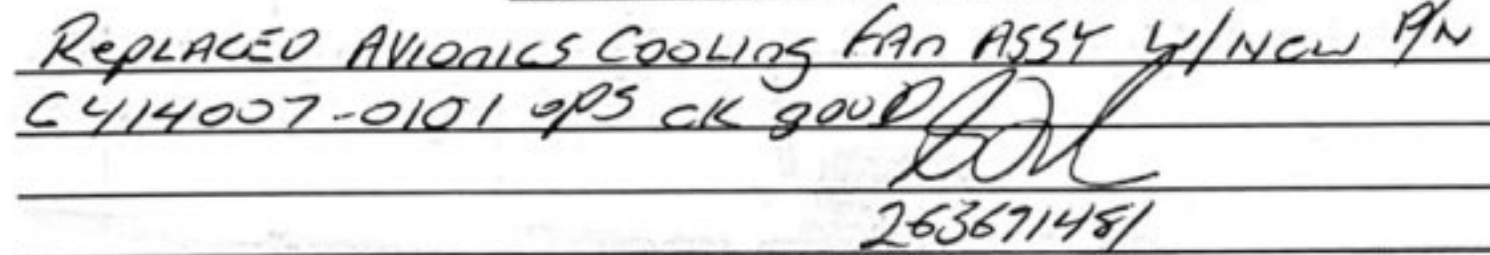 RePLACED AVIONICS COOLING FAN ASSY W/NEW P/N
C414007-0101 OPS CK gOOD
263671481